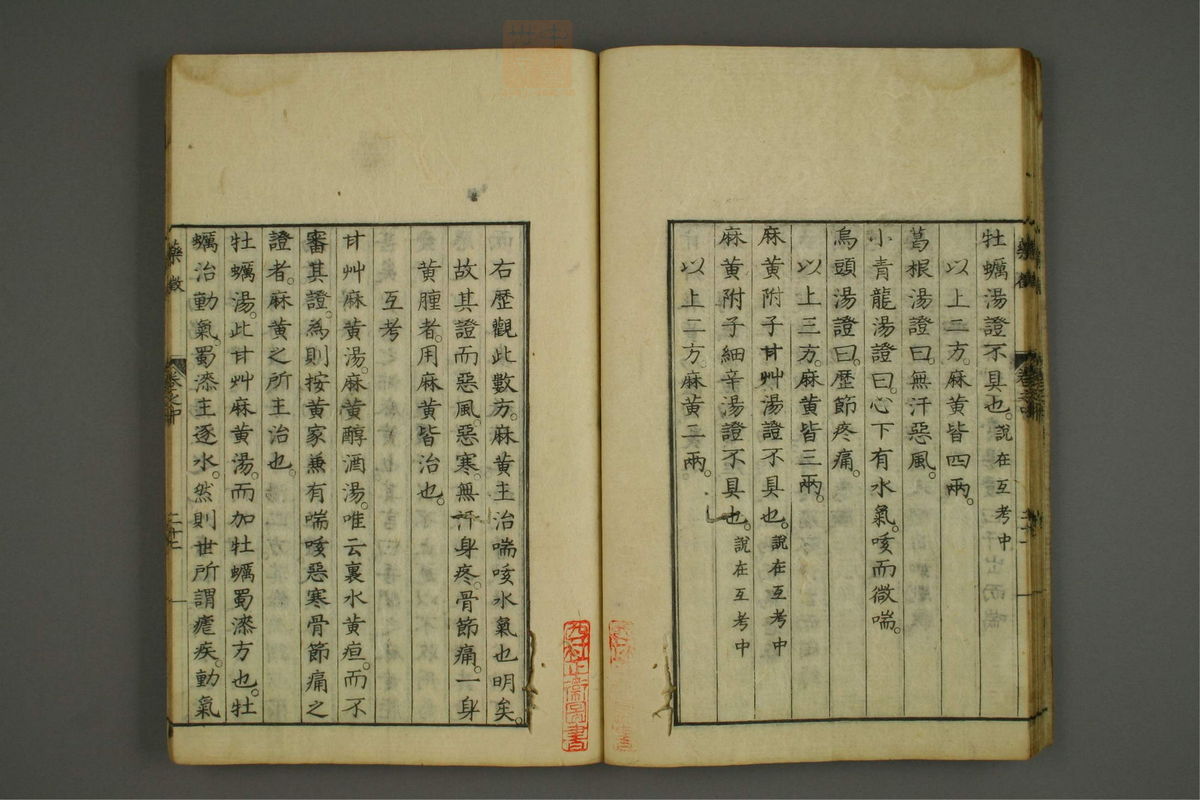 牡蠣湯證不具也。說在互考中
以上二方。麻黄皆四兩。
葛根湯證曰。無汗惡風。
小青龍湯證曰。心下有水氣。咳而微喘。
烏頭湯證曰。歷節疼痛。
以上三方。麻黄皆三兩。
麻黄附子甘艸湯證不具也。說在互考中
麻黄附子細辛湯證不具也。說在互考中
以上二方。麻黄二兩。
右歷觀此數方。麻黄主治喘咳水氣也明矣。
故其證而惡風。惡寒。無汗身疼。骨節痛。一身
黄腫者。用麻黄皆治也。
互考
甘艸麻黄湯。麻黄醇酒湯。唯云裏水黄疸。而不
審其證。為則按黄家兼有喘咳惡寒骨節痛之
證者。麻黄之所主治也。
牡蠣湯。此甘艸麻黄湯。而加牡蠣蜀漆方也。牡
蠣治動氣。蜀漆主逐水。然則世所謂瘧疾。動氣
藥徵
卷之中
二十二